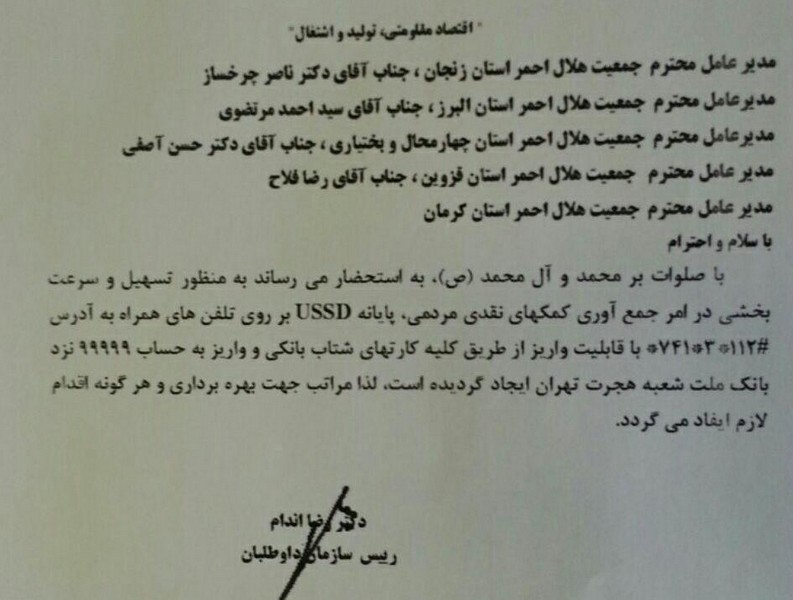 "اقتصاد مقاومتی، تولید و اشتغال"
مدیر عامل محترم جمعیت هلال احمر استان زنجان ، جناب آقای دکتر ناصر چرخساز
مدیرعامل محترم جمعیت هلال احمر استان البرز ، جناب آقای سید احمد مرتضوی
مدیرعامل محترم جمعیت هلال احمر استان چهارمحال و بختیاری ، جناب آقای دکتر حسن آصفی
مدیر عامل محترم جمعیت هلال احمر استان قزوین ، جناب آقای رضا فلاح
مدیر عامل محترم جمعیت هلال احمر استان کرمان
با سلام و احترام
با صلوات بر محمد و آل محمد (ص)، به استحضار می رساند به منظور تسهیل و سرعت
بخشی در امر جمع آوری کمکهای نقدی مردمی، پایانه USSD بر روی تلفن های همراه به آدرس
#۱۱۲*۳*۷۴۱* با قابلیت واریز از طریق کلیه کارتهای شتاب بانکی و واریز به حساب ۹۹۹۹۹ نزد
بانک ملت شعبه هجرت تهران ایجاد گردیده است، لذا مراتب جهت بهره برداری و هر گونه اقدام
لازم ایفاد می گردد.
دکتر رضا اندام
رییس سازمان داوطلبان